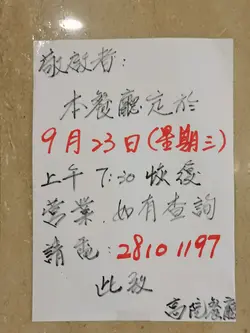 敬啟者:
本餐廳定於
9月23日(星期三)
上午 7:30 恢復
營業.如有查詢
請電:2810 1197
此致
高院餐廳